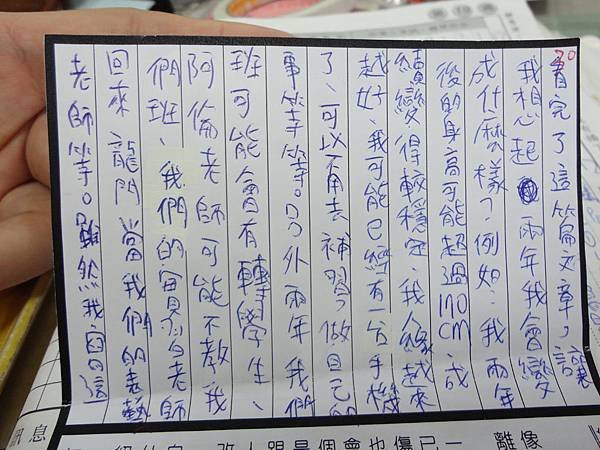 20
看完了這篇文章,讓
我想起兩年我會變
成什麼樣?例如:我兩年
後的身高可能超過170cm、成
績變得較穩定、我人緣越來
越好、我可能已經有一台手機
了、可以不用去補習、做自己的
事等等。另外兩年我們
班可能會有轉學生、
阿倫老師可能不教我
們班、我們的實習老師
回來龍門當我們的表藝
老師等。雖然我寫這
訊息